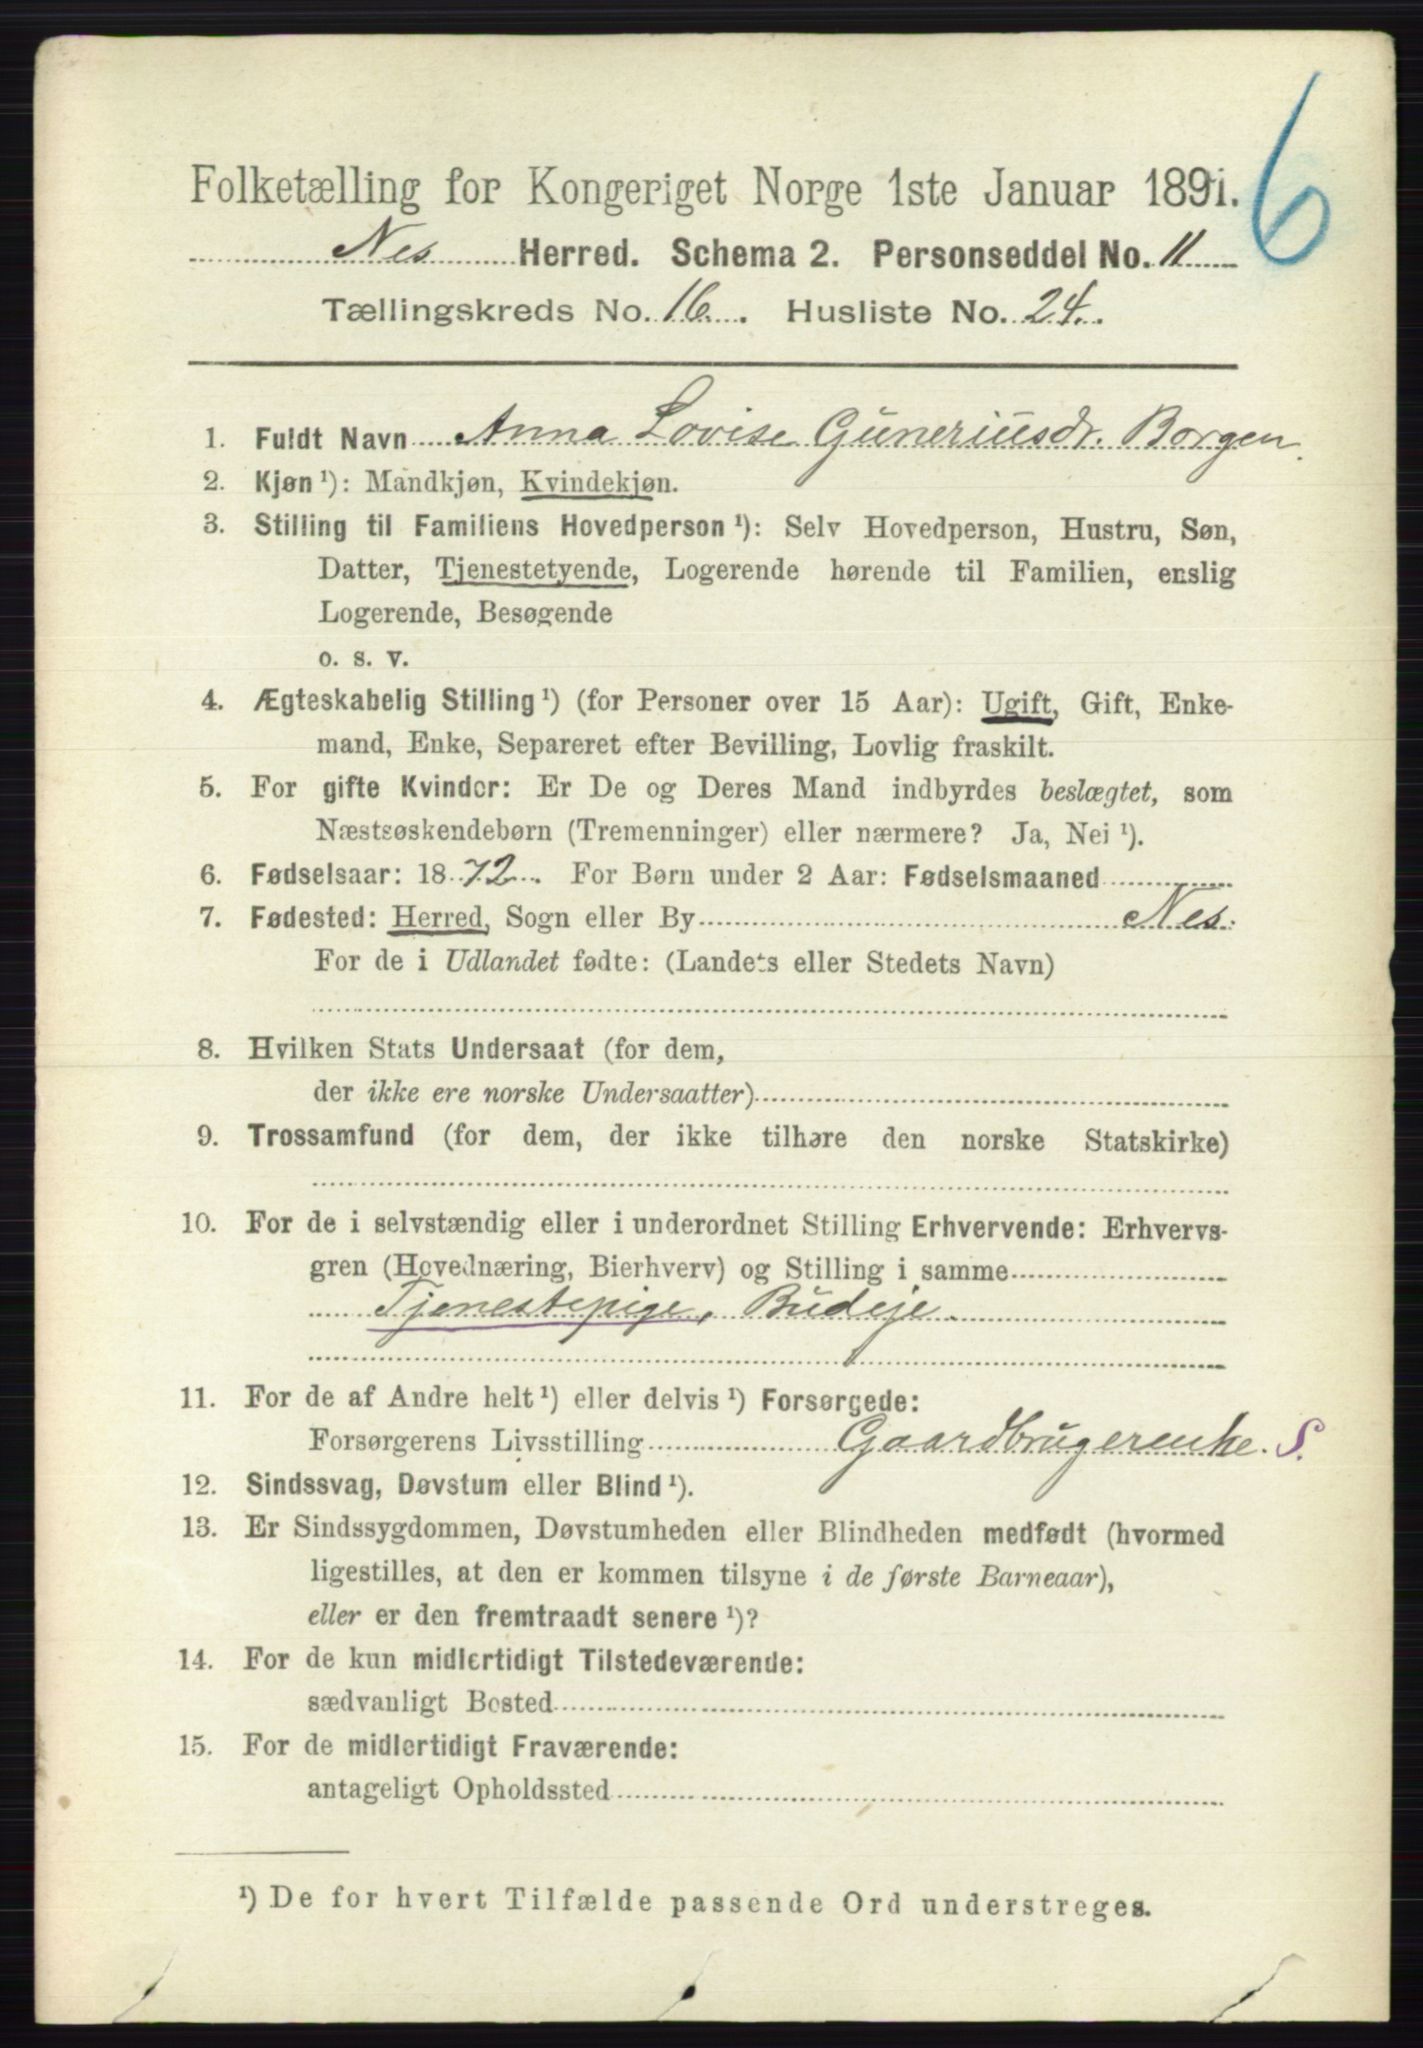 6
Folketælling for Kongeriget Norge 1ste Januar 1891.
Nes Herred. Schema 2. Personseddel No. 11
Tællingskreds No. 16. Husliste No. 24.
1. Fuldt Navn Anna Lovise Guneriusdr. Borgen.
2. Kjøn ¹): Mandkjøn, Kvindekjøn.
3. Stilling til Familiens Hovedperson ¹): Selv Hovedperson, Hustru, Søn,
Datter, Tjenestetyende, Logerende hørende til Familien, enslig
Logerende, Besøgende
o. s. v.
4. Ægteskabelig Stilling ¹) (for Personer over 15 Aar): Ugift, Gift, Enke-
mand, Enke, Separeret efter Bevilling, Lovlig fraskilt.
5. For gifte Kvinder: Er De og Deres Mand indbyrdes beslægtet, som
Næstsøskendebørn (Tremenninger) eller nærmere? Ja, Nei ¹).
6. Fødselsaar: 1872. For Børn under 2 Aar: Fødselsmaaned
7. Fødested: Herred, Sogn eller By Nes.
For de i Udlandet fødte: (Landets eller Stedets Navn)
8. Hvilken Stats Undersaat (for dem,
der ikke ere norske Undersaatter)
9. Trossamfund (for dem, der ikke tilhøre den norske Statskirke)
10. For de i selvstændig eller i underordnet Stilling Erhvervende: Erhvervs-
gren (Hovednæring, Bierhverv) og Stilling i samme
Tjenestepige, Budeje.
11. For de af Andre helt ¹) eller delvis ¹) Forsørgede:
Forsørgerens Livsstilling Gaardbrugerenke. S.
12. Sindssvag, Døvstum eller Blind ¹).
13. Er Sindssygdommen, Døvstumheden eller Blindheden medfødt (hvormed
ligestilles, at den er kommen tilsyne i de første Barneaar),
eller er den fremtraadt senere ¹)?
14. For de kun midlertidigt Tilstedeværende:
sædvanligt Bosted
15. For de midlertidigt Fraværende:
antageligt Opholdssted
¹) De for hvert Tilfælde passende Ord understreges.